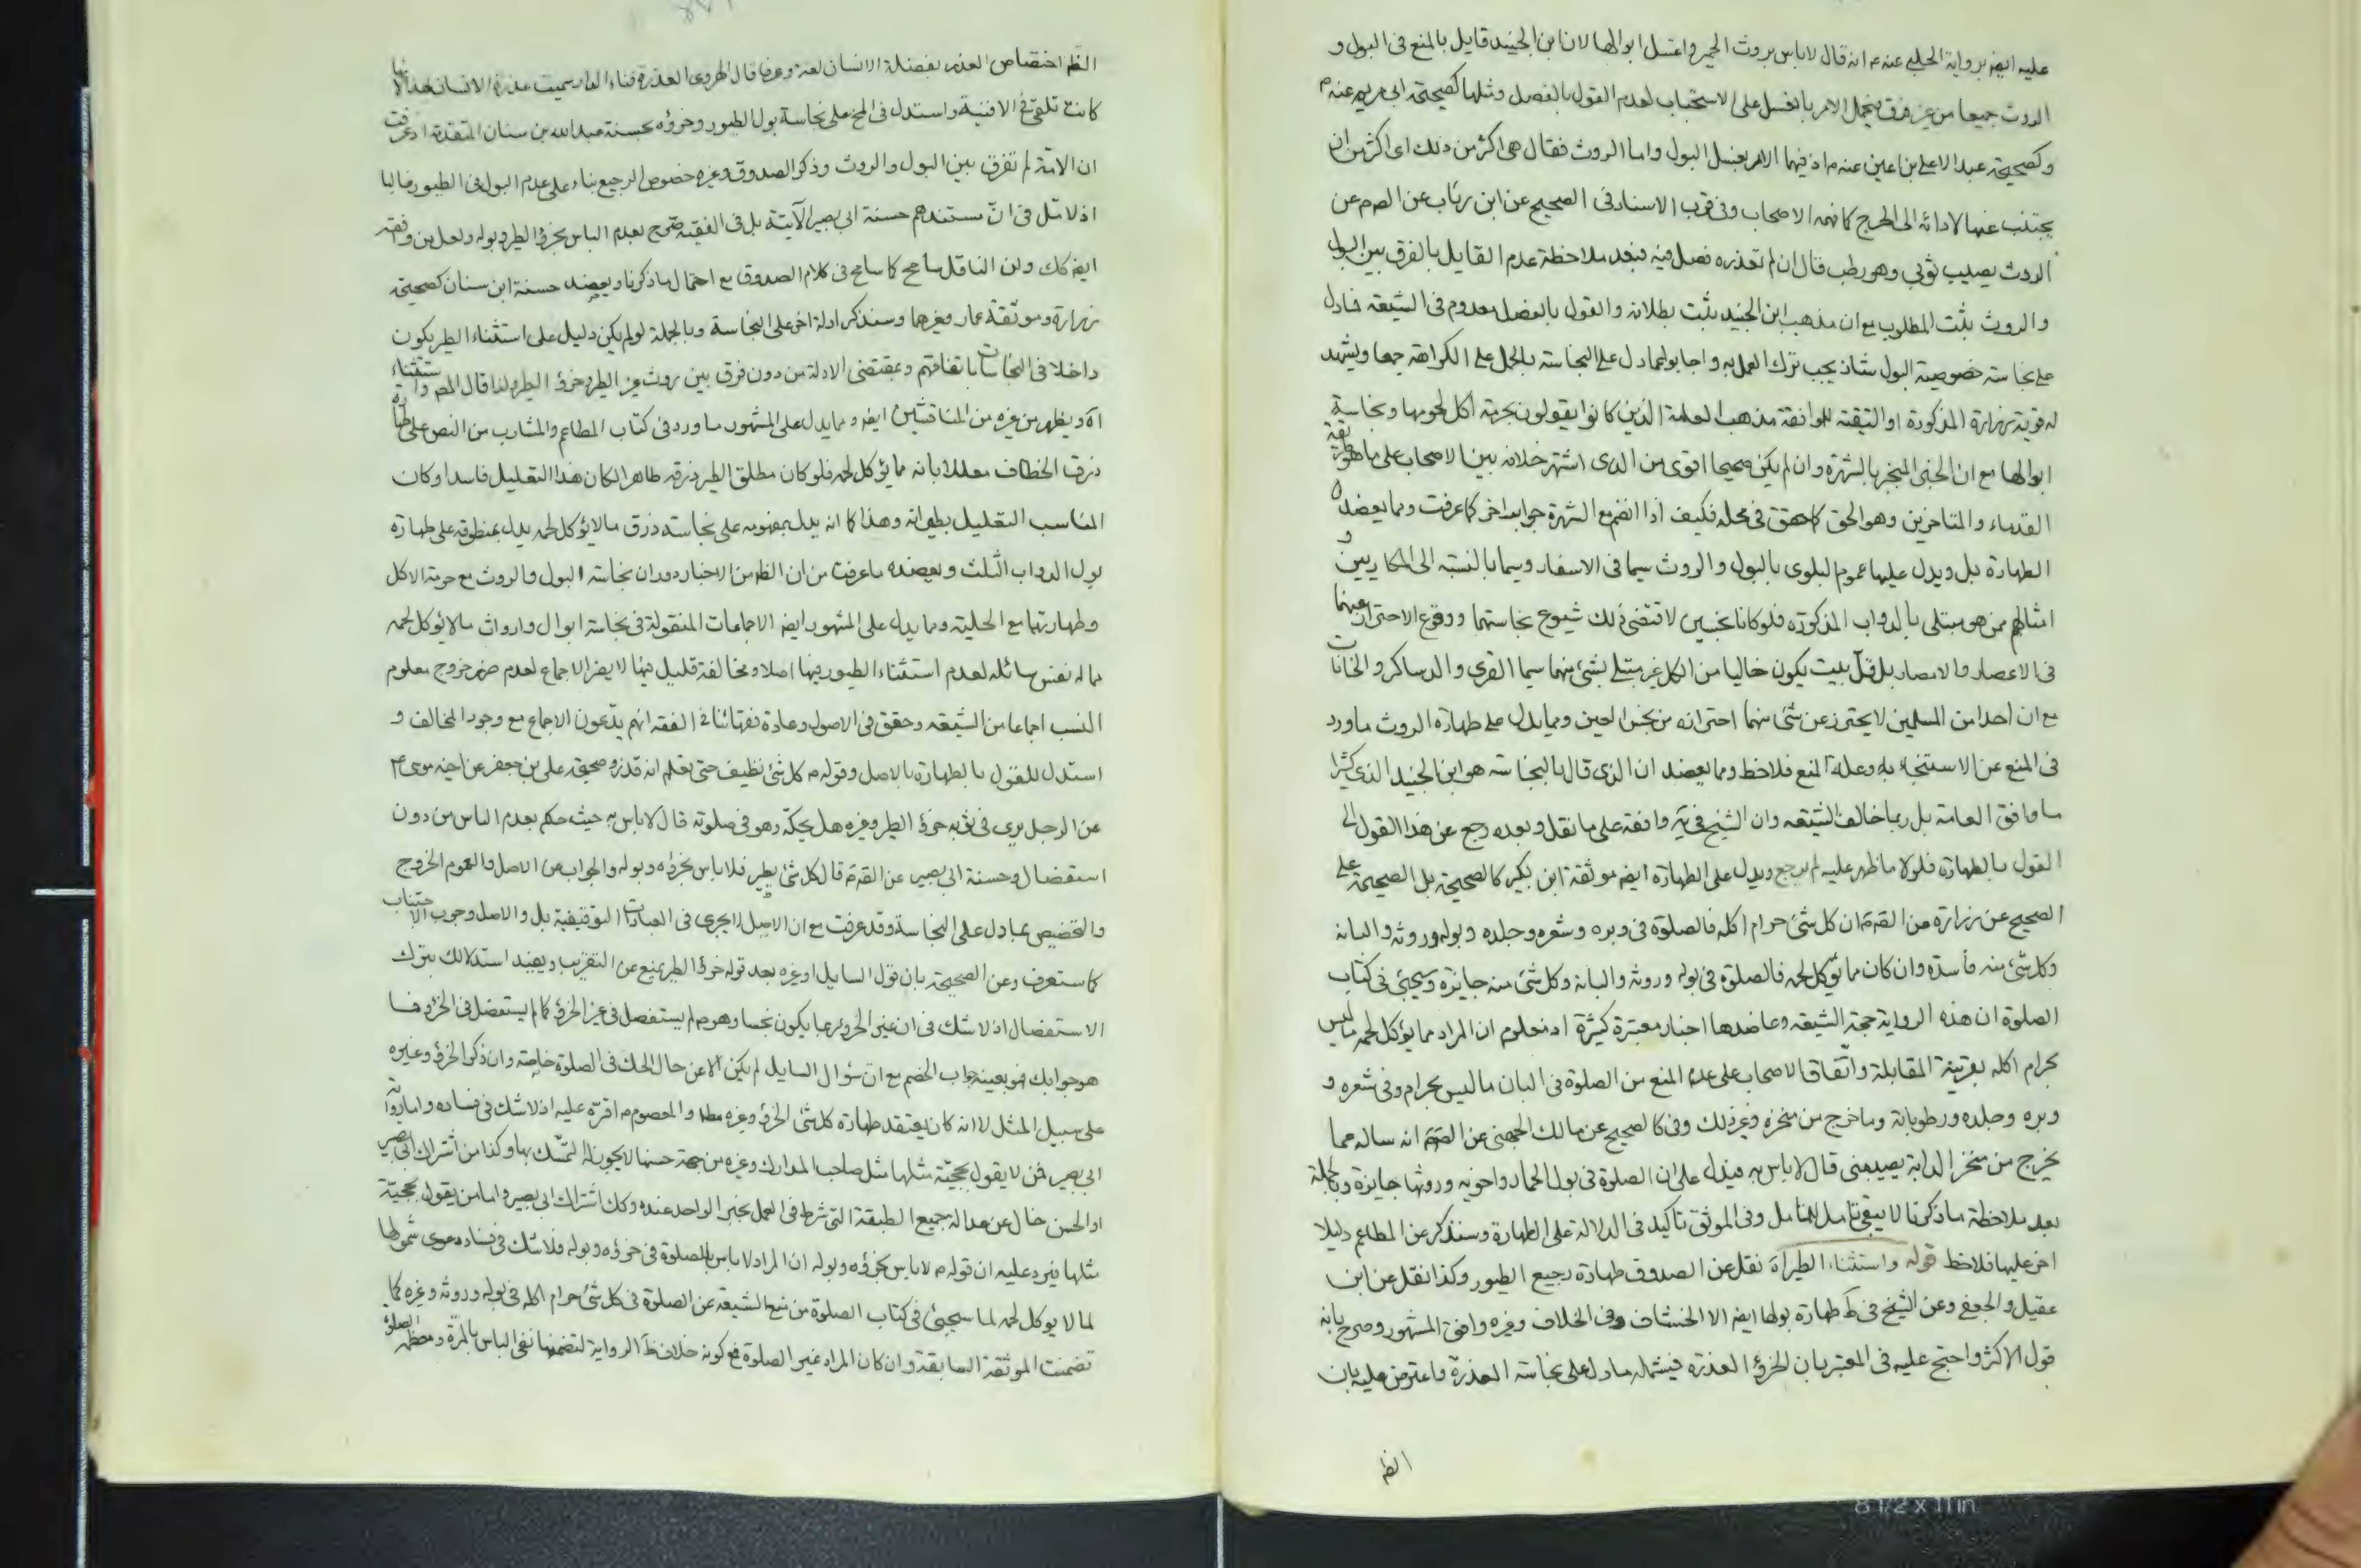 عليه ايضا برواية الحلبي عنه م انه قال لا باس بروث الحمير واغسل ابوالها لان ابن الجنيد قايل بالمنع فى البول و
الروث جميعا من غير فرق فيحمل الامر بالغسل على الاستحباب لعدم القول بالفصل ومثلها كصحيحة ابى مريم عنه م
وكصحيحة عبد الاعلى بن اعين عنه م اذ فيهما الامر بغسل البول واما الروث فقال هى اكثر من ذلك اى اكثر من ان
يجتنب عنها لادائه الى الحرج كما فهمه الاصحاب وفى قرب الاسناد فى الصحيح عن ابن رئاب عن الصم عن
الروث يصيب ثوبى وهو رطب قال ان لم تقذره فصل فيه فبعد ملاحظة عدم القايل بالفرق بين البول
والروث يثبت المطلوب مع ان مذهب ابن الجنيد يثبت بطلانه والقول بالفصل معدوم فى الشيعة فما دل
على نجاسة خصوصية البول شاذ يجب ترك العمل به واجابوا عما دل على النجاسة بالحمل على الكراهة جمعا ويشهد
له قوية زرارة المذكورة او التقية لموافقة مذهب العامة الذين كانوا يقولون بحرمة اكل لحومها ونجاسة
ابوالها مع ان الخبر المنجبر بالشهرة وان لم يكن صحيحا اقوى من الذى اشتهر خلافه بين الاصحاب على ما هو طريقة
القدماء والمتاخرين وهو الحق كما حقق فى محله فكيف اذا انضم مع الشهرة جوابر اخر كما عرفت ومما يعضده
الطهارة بل ويدل عليها عموم البلوى بالبول والروث سيما فى الاسفار وسيما بالنسبة الى المكاريين و
امثالهم ممن هو مبتلى بالدواب المذكورة فلو كانا نجسين لاقتضى ذلك شيوع نجاستهما ووقوع الاحتراز عنهما
فى الاعصار والامصار بل قل بيت يكون خاليا من الكل غير مبتلى بشئ منهما سيما القرى والدساكر والخانات
مع ان احدا من المسلمين لا يحترز عن شئ منهما احترازه من نجس العين ومما يدل على طهارة الروث ما ورد
فى المنع عن الاستنجاء به وعلة المنع فلاحظ ومما يعضد ان الذى قال بالنجاسة هو ابن الجنيد الذى كثيرا
ما وافق العامة بل ربما خالف الشيعة وان الشيخ فى ية وافقه على ما نقل وبعده رجع عن هذا القول الى
القول بالطهارة فلولا ما ظهر عليه لم يرجع ويدل على الطهارة ايضا موثقة ابن بكير كالصحيحة بل الصحيحة على
الصحيح عن زرارة من القدمة ان كل شئ حرام اكله فالصلوة فى وبره وشعره وجلده وبوله وروثه والبانه
وكل شئ منه فاسدة وان كان مما يؤكل لحمه فالصلوة فى بوله وروثه والبانه وكل شئ منه جايزة وسيجئ فى كتاب
الصلوة ان هذه الرواية حجة الشيعة وعاضدها اخبار معتبرة كثيرة اذ معلوم ان المراد مما يؤكل لحمه ما ليس
بحرام اكله بقرينة المقابلة واتفاق الاصحاب على عدم المنع من الصلوة فى البان ما ليس بحرام وفى شعره و
وبره وجلده ورطوباته وما خرج من منخره وغير ذلك وفى كالصحيح عن مالك الجهنى عن الصم انه ساله عما
يخرج من منخر الدابة يصيبنى قال لا باس به فيدل على ان الصلوة فى بول الحمار واخويه وروثها جايزة وبالجملة
بعد ملاحظة ما ذكرنا لا يبقى تامل للمتامل وفى الموثق تاكيد فى الدلالة على الطهارة وسنذكر عن المطاعم دليلا
اخر عليها فلاحظ قوله واستثناء الطيراه نقل عن الصدوق طهارة رجيع الطيور وكذا نقل عن ابن
عقيل والجعفى وعن الشيخ فى ط طهارة بولها ايضا الا الخشاف وفى الخلاف وغيره وافق المشهور وصرح بانه
قول الاكثر واحتج عليه فى المعتبر بان الخرؤ العذرة فيشمله ما دل على نجاسة العذرة واعترض عليه بان
الظم
الظم اختصاص العذرة بفضلة الانسان لغة وعرفا قال الهروى العذرة فناء الدار سميت عذرة الانسان بهذا لانها
كانت تلقى فى الافنية واستدل فى المخ على نجاسة بول الطيور وخرؤه بحسنة عبد الله بن سنان المتقدمة اذ عرفت
ان الائمة لم تفرق بين البول والروث وذكر الصدوق وغيره خصوص الرجيع بناء على عدم البول فى الطيور غالبا
اذ لا تامل فى ان مستندهم حسنة ابى بصير الآتية بل فى الفقيه صرح بعدم الباس بخرؤ الطير وبوله ولعل من وافقه
ايضا كك ولن الناقل سامح كما سامح فى كلام الصدوق مع احتمال ما ذكرنا ويعضد حسنة ابن سنان كصحيحة
زرارة وموثقة عمار وغيرهما وسنذكر ادلة اخر على النجاسة وبالجملة لو لم يكن دليل على استثناء الطير يكون
داخلا فى النجاسات باتفاقهم وبمقتضى الادلة من دون فرق بين روث غير الطير وخرؤ الطير ولذا قال المصر واستثناء
آه ويظهر من غيره من المناقشين ايضا ومما يدل على المشهور ما ورد فى كتاب المطاعم والمشارب من النص على طهارة
ذرق الخطاف معللا بانه مما يؤكل لحمه فلو كان مطلق الطير ذرقه طاهرا لكان هذا التعليل فاسدا وكان
المناسب التعليل بطيرانه وهذا كما انه يدل بمفهومه على نجاسة ذرق ما لا يؤكل لحمه يدل بمنطوقه على طهارة
بول الدواب الثلث ويعضده ما عرفت من ان الظم من الاخبار دوران نجاسة البول والروث مع حرمة الاكل
وطهارتهما مع الحلية ومما يدل على المشهور ايضا الاجماعات المنقولة فى نجاسة ابوال وارواث ما لا يؤكل لحمه
مما له نفس سائلة لعدم استثناء الطيور منها اصلا ومخالفة قليل منها لا يضر الاجماع لعدم ضرر خروج معلوم
النسب اجماعا من الشيعة وحقق فى الاصول وعادة فقهائنا فى الفقه انهم يدعون الاجماع مع وجود المخالف و
استدل للقول بالطهارة بالاصل وقوله م كل شئ نظيف حتى تعلم انه قذر وصحيحة على بن جعفر عن اخيه موسى م
عن الرجل يرى فى ثوبه خرؤ الطير وغيره هل يحكه وهو فى صلوته قال لا باس به حيث حكم بعدم الباس من دون
استفصال وحسنة ابى بصير عن القدمة قال كل شئ يطير فلا باس بخرؤه وبوله والجواب عن الاصل والعموم الخروج
والتخصيص بما دل على النجاسة وقد عرفت مع ان الاصل لا يجرى فى العبادات التوقيفية بل والاصل وجوب الاجتناب
كما ستعرف وعن الصحيحة بان قول السايل او غيره بعد قوله خرؤ الطير يمنع عن التقريب ويفسد استدلالك بترك
الاستفصال اذ لا شك فى ان غير الخرؤ ربما يكون نجسا وهو م لم يستفصل فى غير الخرؤ كما لم يستفصل فى الخرؤ فما
هو جوابك فهو بعينه جواب الخصم مع ان سؤال السايل لم يكن الا عن حال الحك فى الصلوة خاصة وان ذكر الخرؤ وغيره
على سبيل المثل لا انه كان يعتقد طهارة كل شئ الخرؤ وغيره مطا والمعصوم م اقره عليه اذ لا شك فى فساده واما رواية
ابى بصير فمن لا يقول بحجية مثلها مثل صاحب المدارك وغيره من جهة حسنها لا يجوز له التمسك بها وكذا من اشتراك ابى بصير
او الحسن خال عن عدالة جميع الطبقة التى شرط فى العمل بخبر الواحد عنده وكك اشتراك ابى بصير واما من يقول بحجية
مثلها فيرد عليه ان قوله م لا باس بخرؤه وبوله ان المراد لا باس بالصلوة فى خرؤه وبوله فلا شك فى فساد دعوى شمولها
لما لا يوكل لحمه لما سيجئ فى كتاب الصلوة من منع الشيعة عن الصلوة فى كل شئ حرام اكله فى بوله وروثه وغيره كما
تضمنت الموثقة السابقة وان كان المراد غير الصلوة فمع كونه خلاف ظ الرواية لتضمنها نفى الباس بالمرة ومعظمه الصلوة